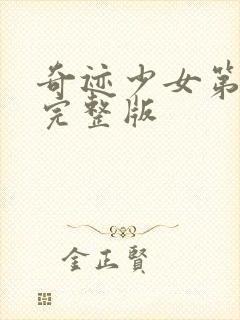 奇迹少女第
完整版
金正賢